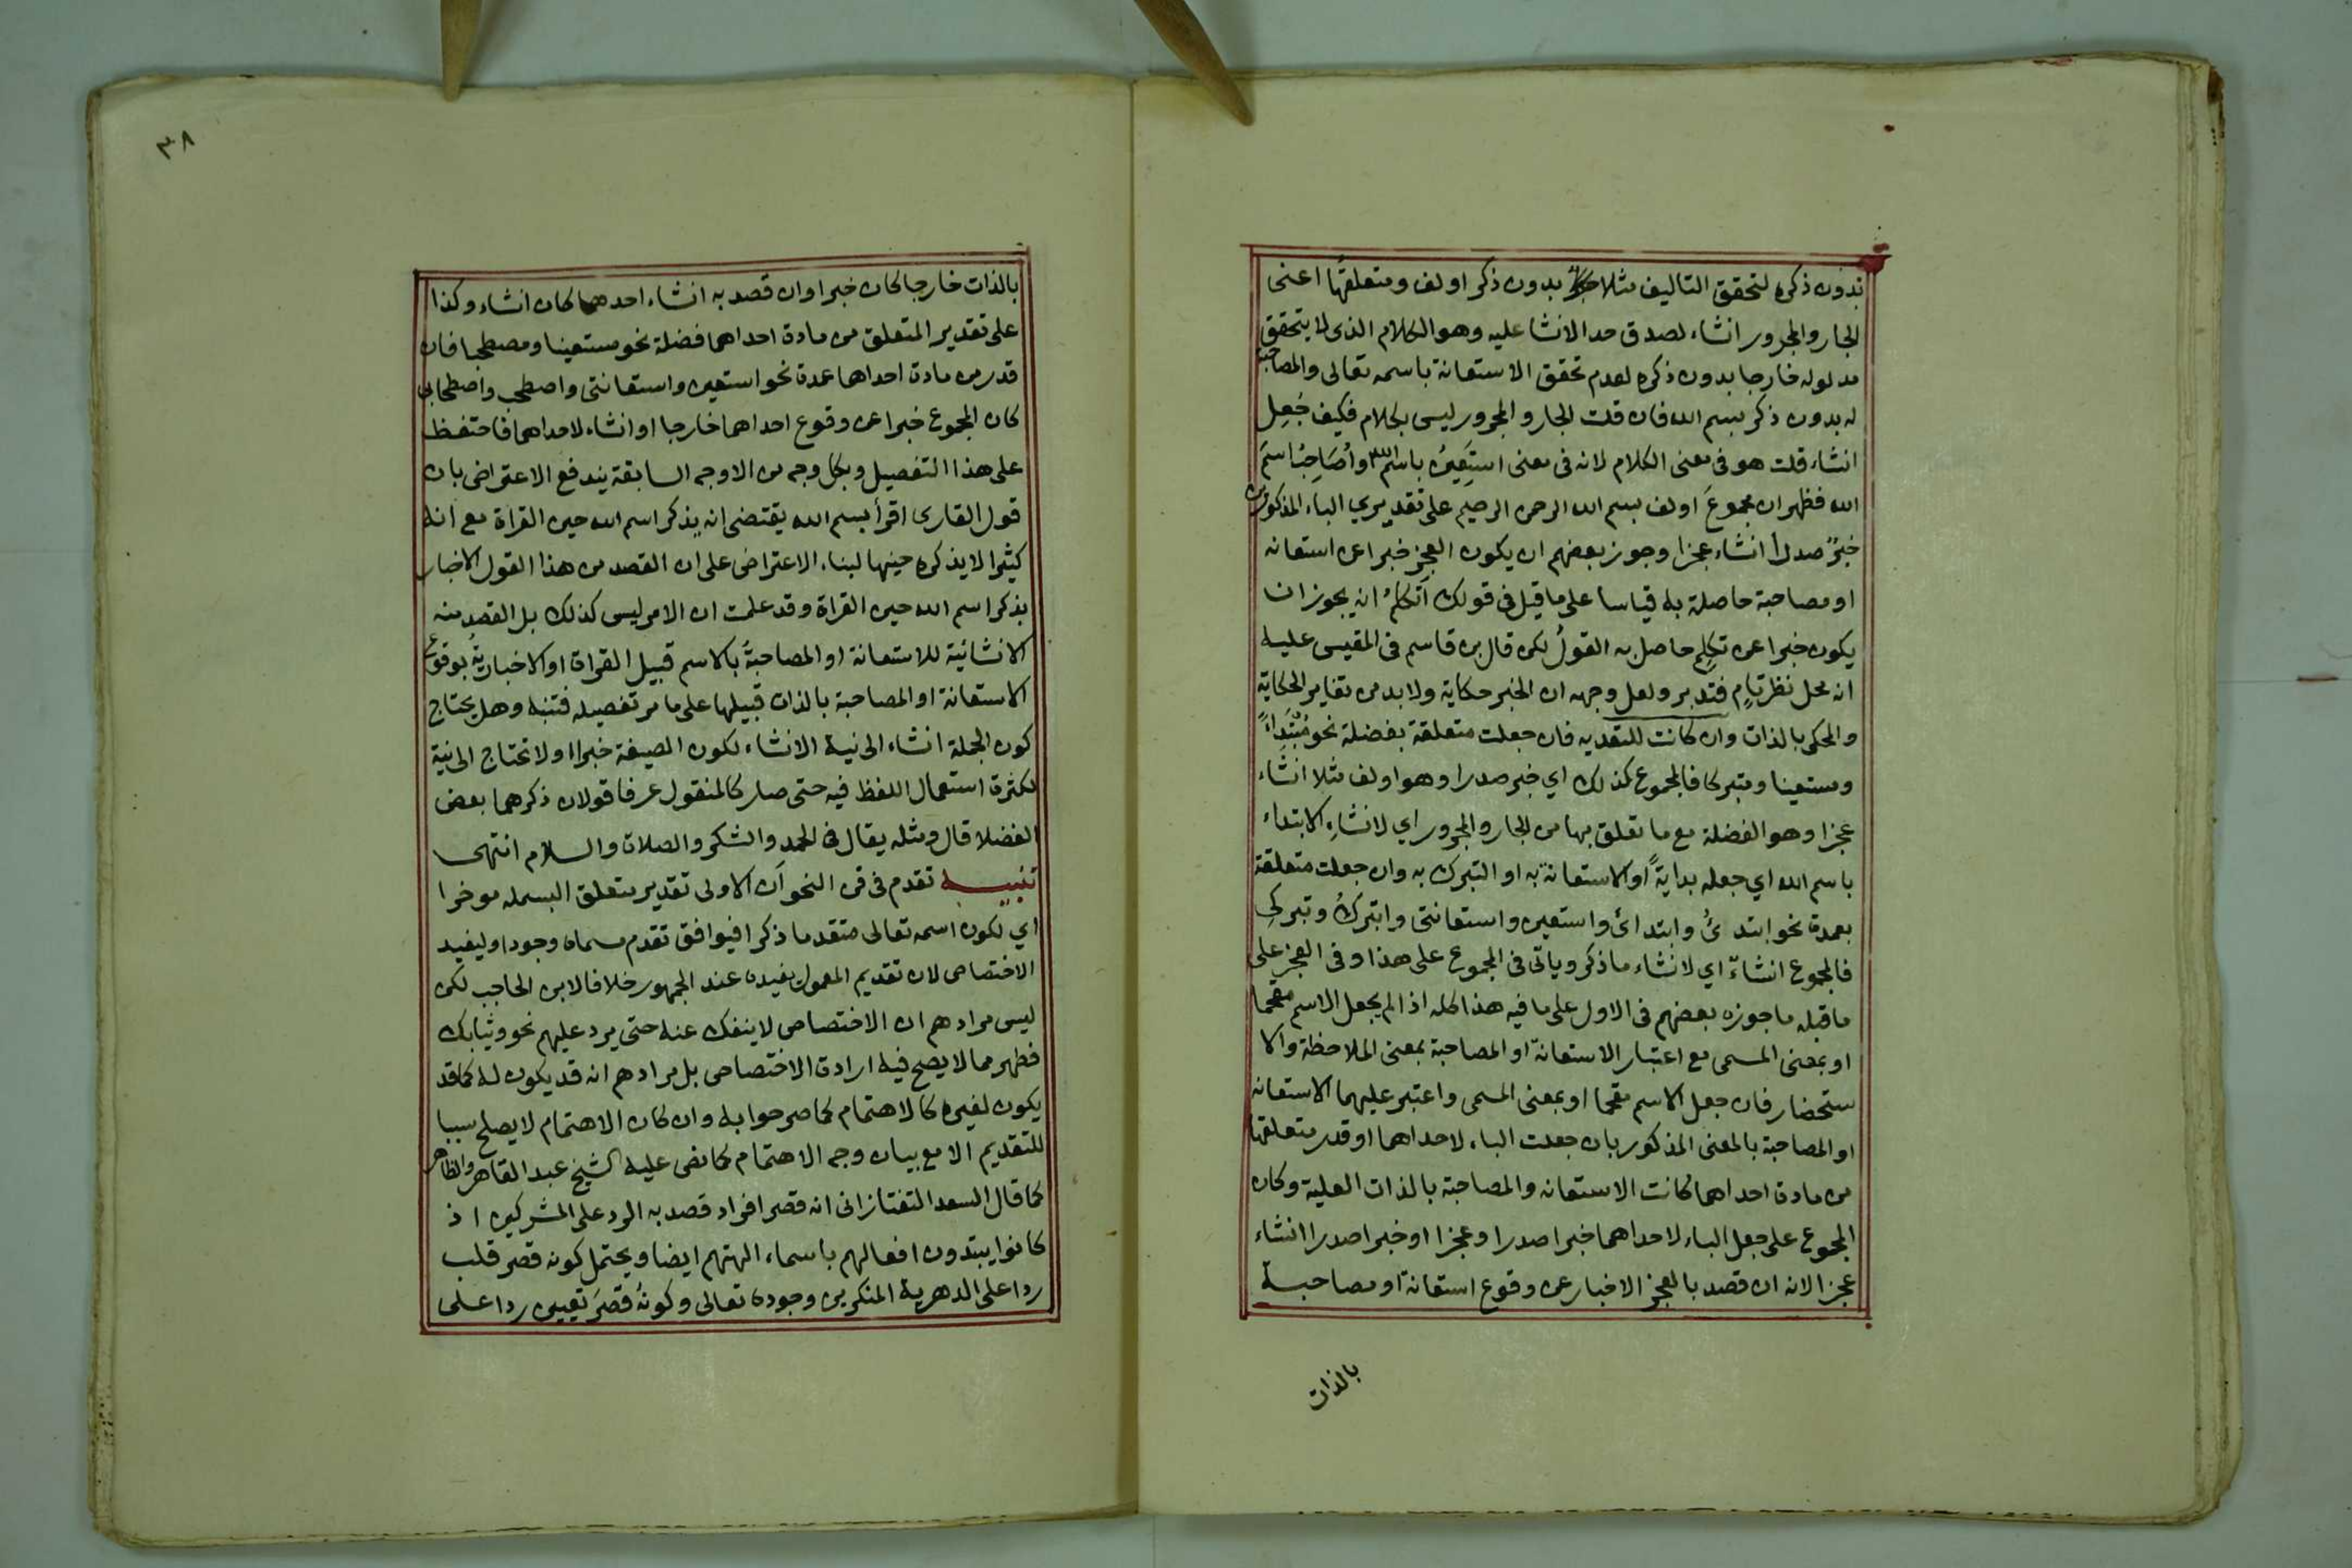 بدون ذكره لتحقق التاليف مثلا بدون ذكر اولف ومتعلقها اعنى
الجار والمجرور انشاء لصدق حد الانشا عليه وهو الكلام الذى لا يتحقق
مدلوله خارجا بدون ذكره لعدم تحقق الاستعانة باسمه تعالى والمصاحبة
له بدون ذكر بسم الله فان قلت الجار والمجرور ليس بكلام فكيف جُعِل
انشاء قلت هو فى معنى الكلام لانه فى معنى استَعِينُ باسم الله وأُصَاحِبُ اسمَ
الله فظهر ان مجموعَ اولف بسم الله الرحمن الرحيم على تقديري الباء المذكورين
خبرٌ صدرا انشاء عجزا وجوز بعضهم ان يكون العجز خبرا عن استعانه
او مصاحبة حاصلة به قياسا على ما قيل فى قولك اتكلمُ انه يجوز ان
يكون خبرا عن تكلِمٍ حاصل به القولُ لكن قال بن قاسم فى المقيس عليه
انه محل نظر تام فتدبر ولعل وجهه ان الخبر حكاية ولا بد من تغاير الحكاية
والمحكى بالذات وان كانت للتعديه فان جعلت متعلقة بفضلة نحو مُبْتَدِاءً
ومستعينا ومتبركا فالمجموع كذلك اي خبر صدرا وهو اولف مثلا انشاء
عجزا وهو الفضلة مع ما تعلق بها من الجار والمجرور اي لانشاءِ الابتداء
باسم الله اي جعله بدايةً او الاستعانة به او التبرك به وان جعلت متعلقة
بعمدة نحو ابتدئُ وابتدائ واستعين واستعانتى واتبركُ وتبركِى
فالمجموع انشاءّ اي لانشاء ما ذكر وياتى فى المجموع على هذا وفى العجز على
ما قبله ما جوزه بعضهم فى الاول على ما فيه هذا كله اذا لم يجعل الاسم مقحما
او بمعنى المسمى مع اعتبار الاستعانة او المصاحبة بمعنى الملاحظة والا
ستحضار فان جعل الاسم مقحما او بمعنى المسمى واعتبر عليهما الاستعانه
او المصاحبة بالمعنى المذكور بان جعلت الباء لاحداهما او قدر متعلقها
من مادة احداهما كانت الاستعانه والمصاحبة بالذات العلية وكان
المجموع على جعل الباء لاحداهما خبرا صدرا وعجزا او خبرا صدرا انشاء
عجزا لانه ان قصد بالعجز الاخبار عن وقوع استعانة او مصاحبة
بالذات
٣٨
بالذات خارجا كان خبرا وان قصد به انشاء احدهما كان انشاء وكذا
على تقدير المتعلق من مادة احداهما فضلة نحو مستعينا ومصطحبا فان
قدر من مادة احداهما عمدة نحو استعين واستعانتى واصطحب واصطحابى
كان المجموع خبرا عن وقوع احداهما خارجا او انشاء لاحداهما فاحتفظ
على هذا التفصيل وبكل وجه من الاوجه السابقة يندفع الاعتراض بان
قول القارى اقرأ بسم الله يقتضى انه يذكر اسم الله حين القراة مع انه
كثيرا لا يذكره حينها لبناء الاعتراض على ان القصد من هذا القول الاخبار
بذكر اسم الله حين القراة وقد علمت ان الامر ليس كذلك بل القصد منه
الانشائية للاستعانة او المصاحبةُ بالاسم قبيل القراة او الاخباريةُ بوقوع
الاستعانة او المصاحبة بالذات قبيلها على ما مر تفصيله فتنبه وهل يحتاج
كون الجملة انشاء الى نية الانشاء لكون الصيغة خبرا او لا تحتاج الى نية
لكثرة استعمال اللفظ فيه حتى صار كالمنقول عرفا قولان ذكرهما بعض
الفضلا قال ومثله يقال فى الحمد والشكر والصلاة والسلام انتهى
تنبيه تقدم فى فن النحو أن الاولى تقدير متعلق البسمله موخرا
اي لكون اسمه تعالى متقدما ذكرا فيوافق تقدم مسماه وجودا وليفيد
الاختصاص لان تقديم المعمول يفيده عند الجمهور خلافا لابن الحاجب لكن
ليس مرادهم ان الاختصاص لا ينفك عنه حتى يرد عليهم نحو وثيابك
فطهر مما لا يصح فيه ارادة الاختصاص بل مرادهم انه قد يكون له كما قد
يكون لغيره كالاهتمام كما صرحوا به وان كان الاهتمام لا يصلح سببا
للتقديم الا مع بيان وجه الاهتمام كما نص عليه الشيخ عبد القاهر والظاهر
كما قال السعد التفتازانى انه قصر افراد قصد به الرد على المشركين اذ
كانوا يبتدون افعالهم باسماء الهتهم ايضا ويحتمل كونه قصر قلب
ردا على الدهرية المنكرين وجوده تعالى وكونُه قصرَ تعيين ردا على